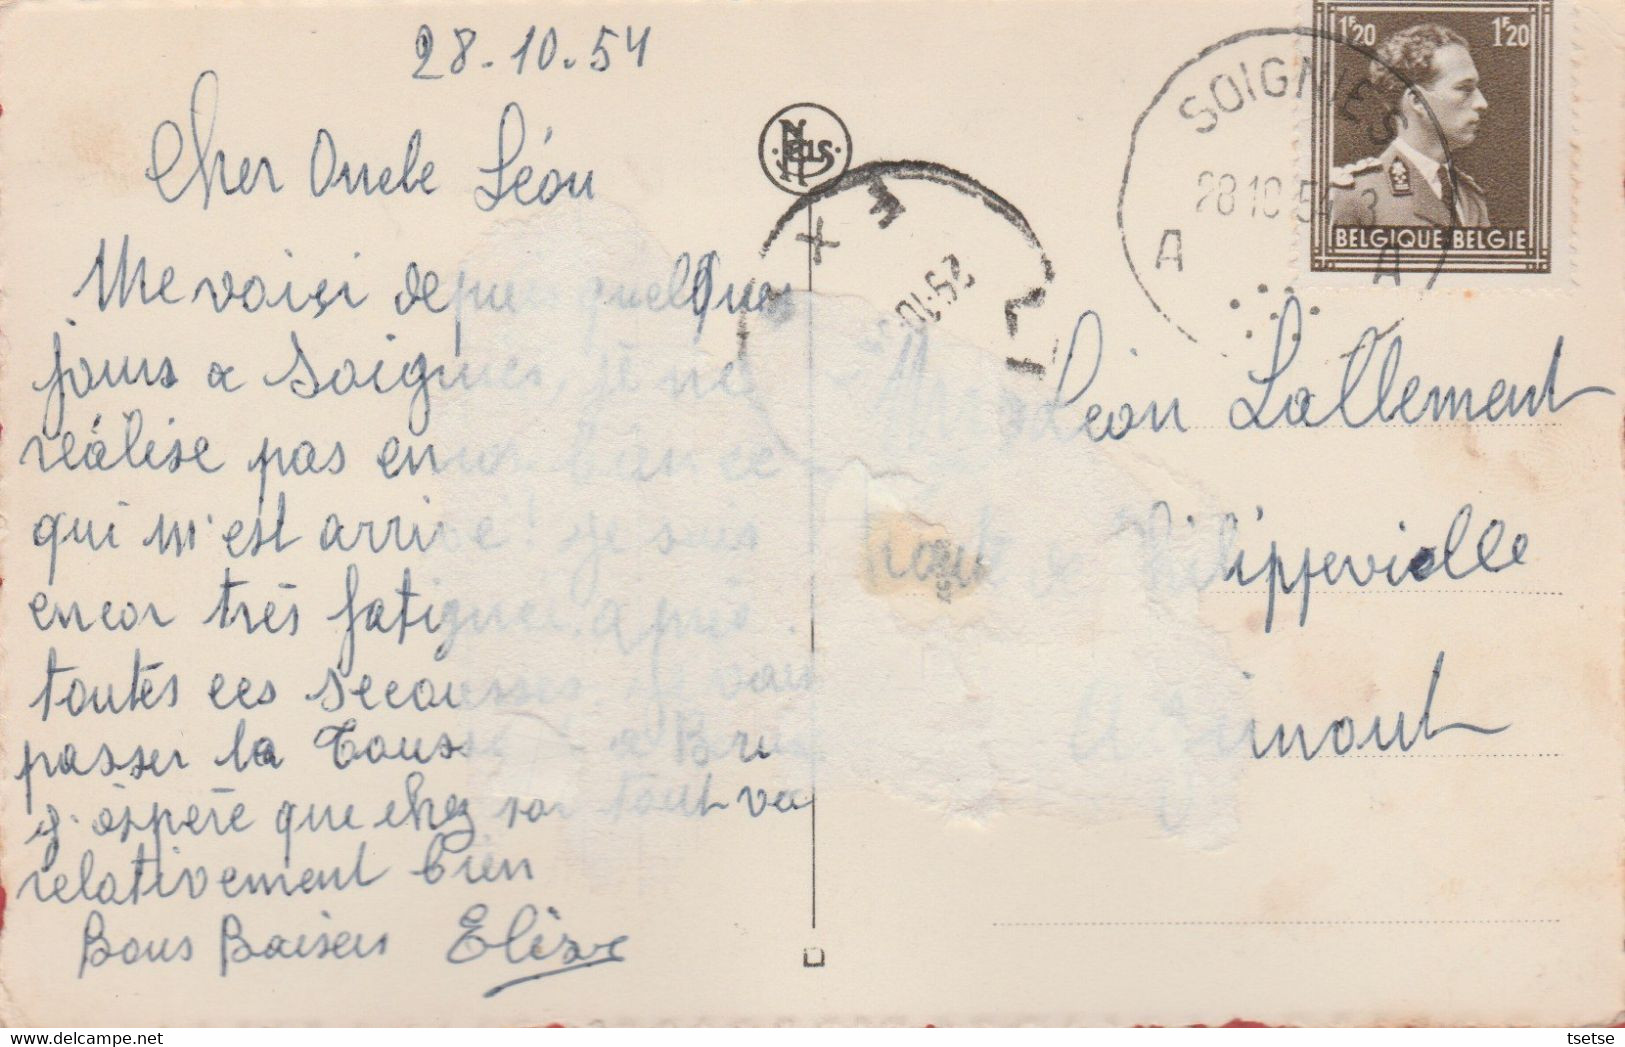 28.10.54
Cher Oncle Léon
Me voiçi depuis quelques
jours a Soignies, je ne
réalise pas en
qui m'est arrivé ! je suis
encor très fatiguée. aprés
toutes ces secousses. je vais
passer la Touss a Bru
j'éspère que chez toi tout va
relativement bien
Bons Baisers Elise
Nels
SOIGNIES
28 10 54
A A
1F20 1F20
BELGIQUE-BELGIE
29.10
Léon Lallement
route de Philippeville
tsetse